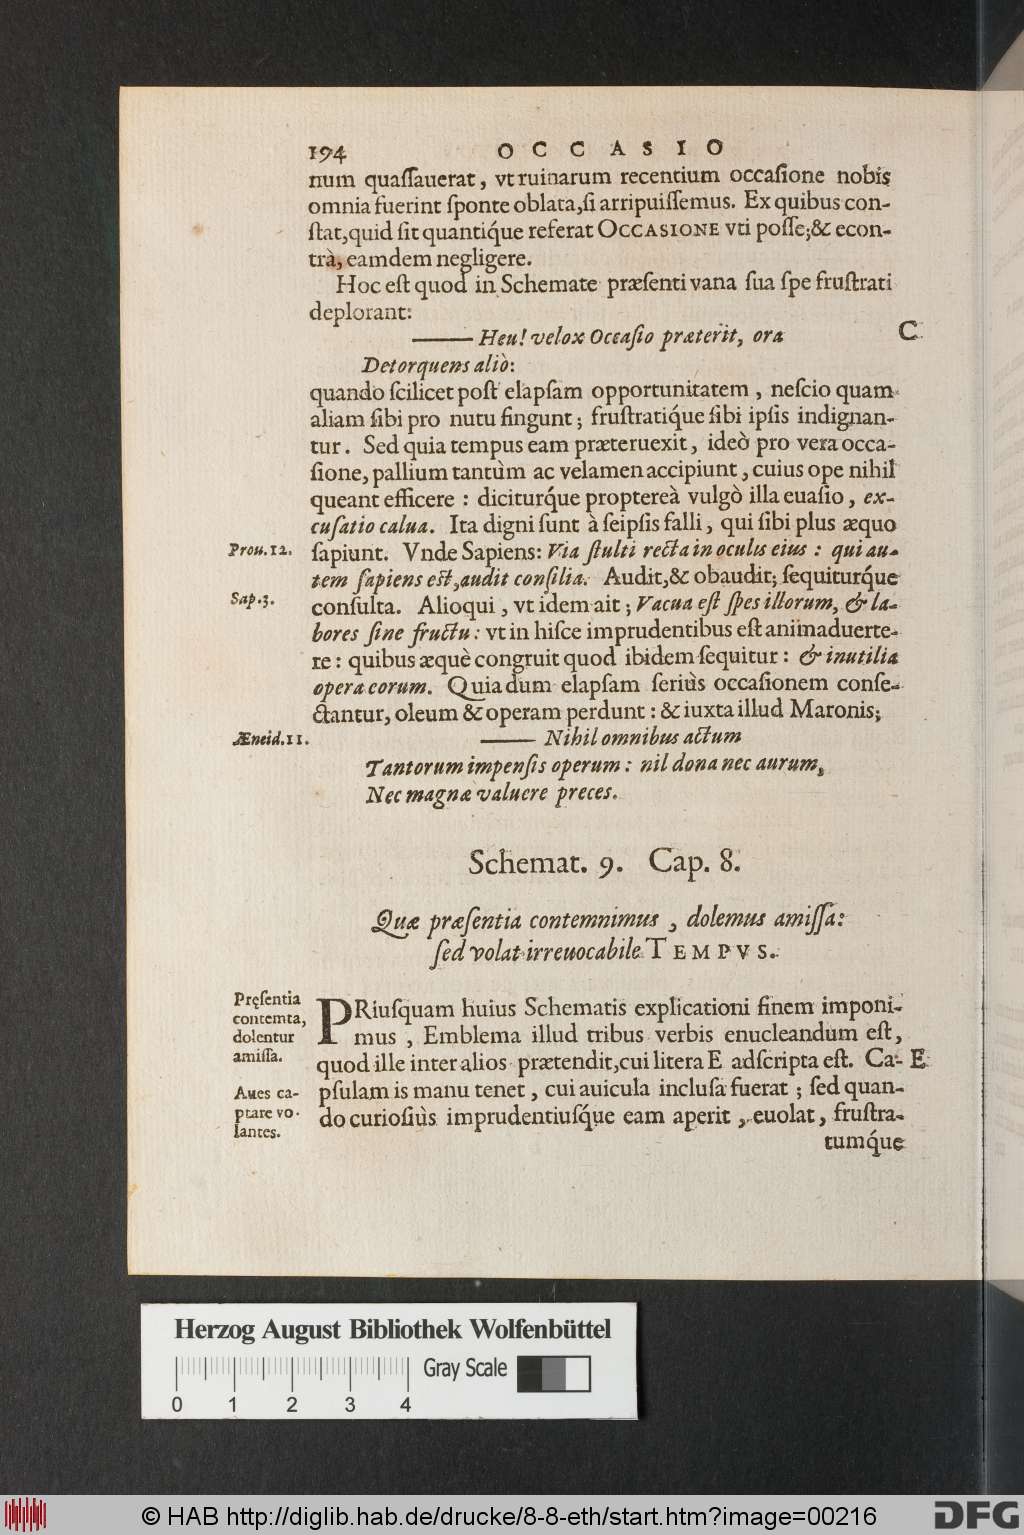 194 OCCASIO
num quaſſauerat, vt ruinarum recentium occaſione nobis
omnia fuerint ſponte oblata, ſi arripuiſſemus. Ex quibus con-
ſtat, quid ſit quantiq́ue referat OCCASIONE vti poſſe; & econ-
trà, eamdem negligere.
Hoc eſt quod in Schemate præſenti vana ſua ſpe fruſtrati
deplorant:
—— Heu! velox Occaſio præterit, ora
C
Detorquens aliò:
quando ſcilicet poſt elapſam opportunitatem, neſcio quam
aliam ſibi pro nutu fingunt; fruſtratiq́ue ſibi ipſis indignan-
tur. Sed quia tempus eam præteruexit, ideò pro vera occa-
ſione, pallium tantùm ac velamen accipiunt, cuius ope nihil
queant efficere: diciturq́ue proptereà vulgò illa euaſio, ex-
cuſatio calua. Ita digni ſunt à ſeipſis falli, qui ſibi plus æquo
Prou. 12. ſapiunt. Vnde Sapiens: Via ſtulti recta in oculis eius: qui au-
tem ſapiens eſt, audit conſilia. Audit, & obaudit; ſequiturq́ue
Sap. 3. conſulta. Alioqui, vt idem ait; Vacua eſt ſpes illorum, & la-
bores ſine fructu: vt in hiſce imprudentibus eſt animaduerte-
re: quibus æquè congruit quod ibidem ſequitur: & inutilia
opera eorum. Quia dum elapſam ſeriùs occaſionem conſe-
ctantur, oleum & operam perdunt: & iuxta illud Maronis;
Æneid. 11. —— Nihil omnibus actum
Tantorum impenſis operum: nil dona nec aurum,
Nec magnæ valuere preces.
Schemat. 9. Cap. 8.
Quæ præſentia contemnimus, dolemus amiſſa:
ſed volat irreuocabile TEMPVS.
Pręſentia
contemta,
dolentur
amiſſa.
Aues ca-
ptare vo-
lantes.
PRiuſquam huius Schematis explicationi finem imponi-
mus, Emblema illud tribus verbis enucleandum eſt,
quod ille inter alios prætendit, cui litera E adſcripta eſt. Ca- E
pſulam is manu tenet, cui auicula incluſa fuerat; ſed quan-
do curioſiùs imprudentiuſq́ue eam aperit, euolat, fruſtra-
tumq́ue
Herzog August Bibliothek Wolfenbüttel
Gray Scale
0 1 2 3 4
© HAB http://diglib.hab.de/drucke/8-8-eth/start.htm?image=00216
DFG